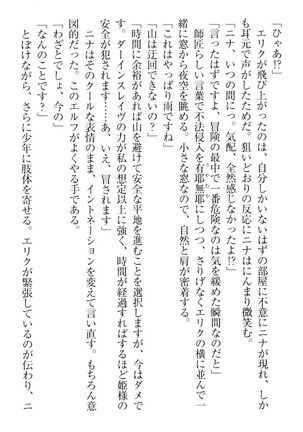 「ひゃあ!?」
　エリクが飛び上がったのは、自分しかいないはずの部屋に不意にニナが現れ、しか
も耳元で声がしたためだ。狙いどおりの反応にニナはにんまり微笑む。
「ニナ、いつの間にっ。気配、全然感じなかったよ!?」
「言ったはずですよ、冒険の最中で一番危険なのは気を緩めた瞬間なのだと」
　師匠らしい言葉で不法侵入を有耶無耶にしつつ、さりげなくエリクの横に並んで一
緒に窓から夜空を眺める。小さな窓なので、自然と肩が密着する。
「これはやっぱり雨ですね」
「山は迂回できないの?」
「時間に余裕があれば山を避けて安全な平地を進むことを選択しますが、今はダメで
す。ダーインスレイヴの力が私の想定以上に強く、時間が経過すればするほど姫様の
意識が犯されます……あ、いえ、冒されます」
　ニナはそのクールな表情のまま、イントネーションを変えて言い直す。もちろん意
図的だった。このエルフがよくやる手である。
「わざとでしょ、今の」
「なんのことです?」
　とぼけながら、さらに少年に肢体を寄せる。エリクが緊張しているのが伝わり、ニ